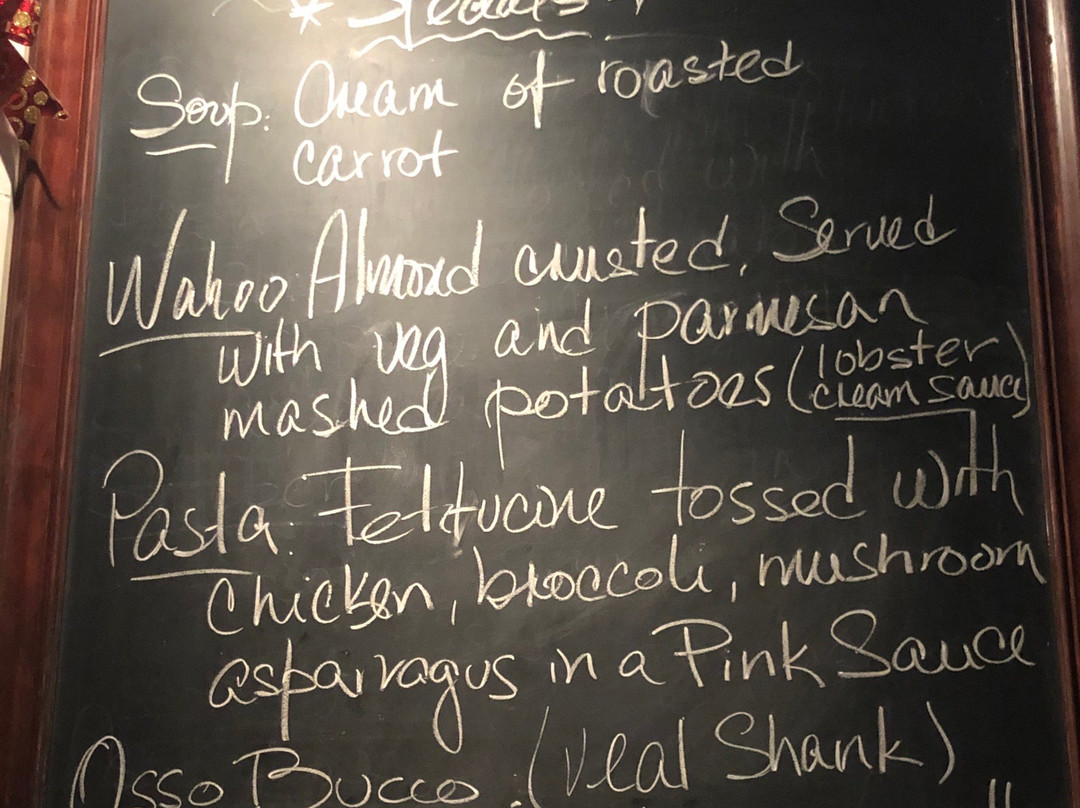 * Specials
Soup: Cream of roasted
carrot
Wahoo Almond crusted, Served
with veg and parmesan
mashed potatoes (lobster
cream sauce)
Pasta: Fettucine tossed with
Chicken, broccoli, mushroom
asparagus in a Pink Sauce
Osso Bucco. (Veal Shank)